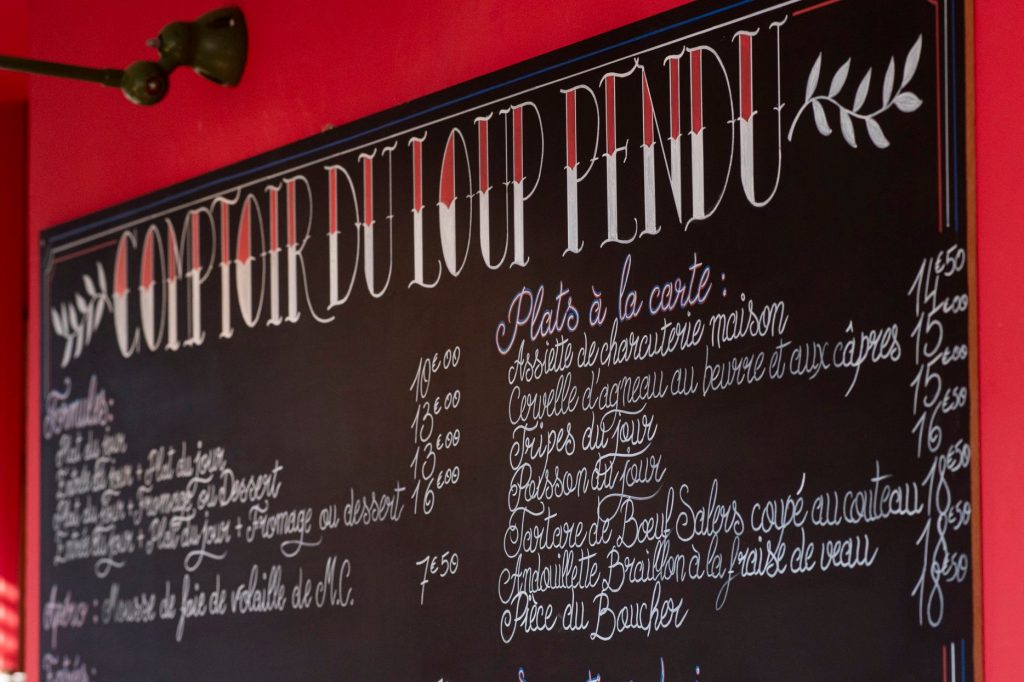 COMPTOIR DU LOUP PENDU
Formules:
Plat du jour 10€00
Entrée du jour + Plat du jour 13€00
Plat du Jour + Fromage ou Dessert 13€00
Entrée du jour + Plat du jour + Fromage ou dessert 16€00
Apéro : Mousse de foie de volaille de M.C. 7€50
Plats à la carte :
Assiette de charcuterie maison 14€50
Cervelle d'agneau au beurre et aux câpres 15€00
Tripes du jour 15€00
Poisson du jour 16€50
Tartare de Bœuf Salers coupé au couteau 18€50
Andouillette Braillon à la fraise de veau 18€50
Pièce du Boucher 18€50